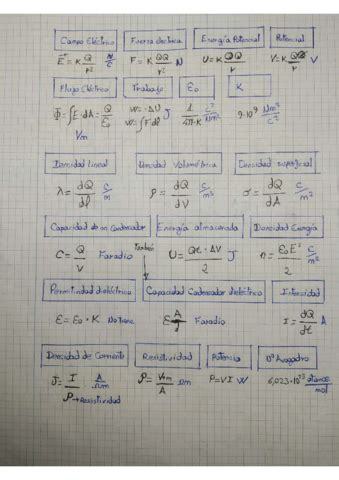 Campo Eléctrico Fuerza eléctrica Energía Potencial Potencial
E = K Q/r² N/C F = K QQ/r² N U = K QQ/r V = K Q/r V
Flujo Eléctrico Trabajo ε₀ K
Φ = ∫E·dA = Q/ε₀ W = -ΔU J 1/4π·K C²/Nm² 9·10⁹ Nm²/C²
Vm W = ∫F dl
Densidad lineal Densidad Volumétrica Densidad superficial
λ = dQ/dl C/m ρ = dQ/dV C/m³ σ = dQ/dA C/m²
Capacidad de un Condensador Energía almacenada Densidad Energía
También
C = Q/V Faradio U = ΔV/2 J n = ε₀E²/2 C/m²
Permitividad dieléctrico Capacidad Codensador dieléctrico Intensidad
ε = ε₀ · K No tiene ε A/d Faradio I = dQ/dt A
Densidad de Corriente Resistividad Potencia Nº Avogadro
J = I/ρ → Resistividad ρ = Ωm P = VI W 6,023·10²³ mol